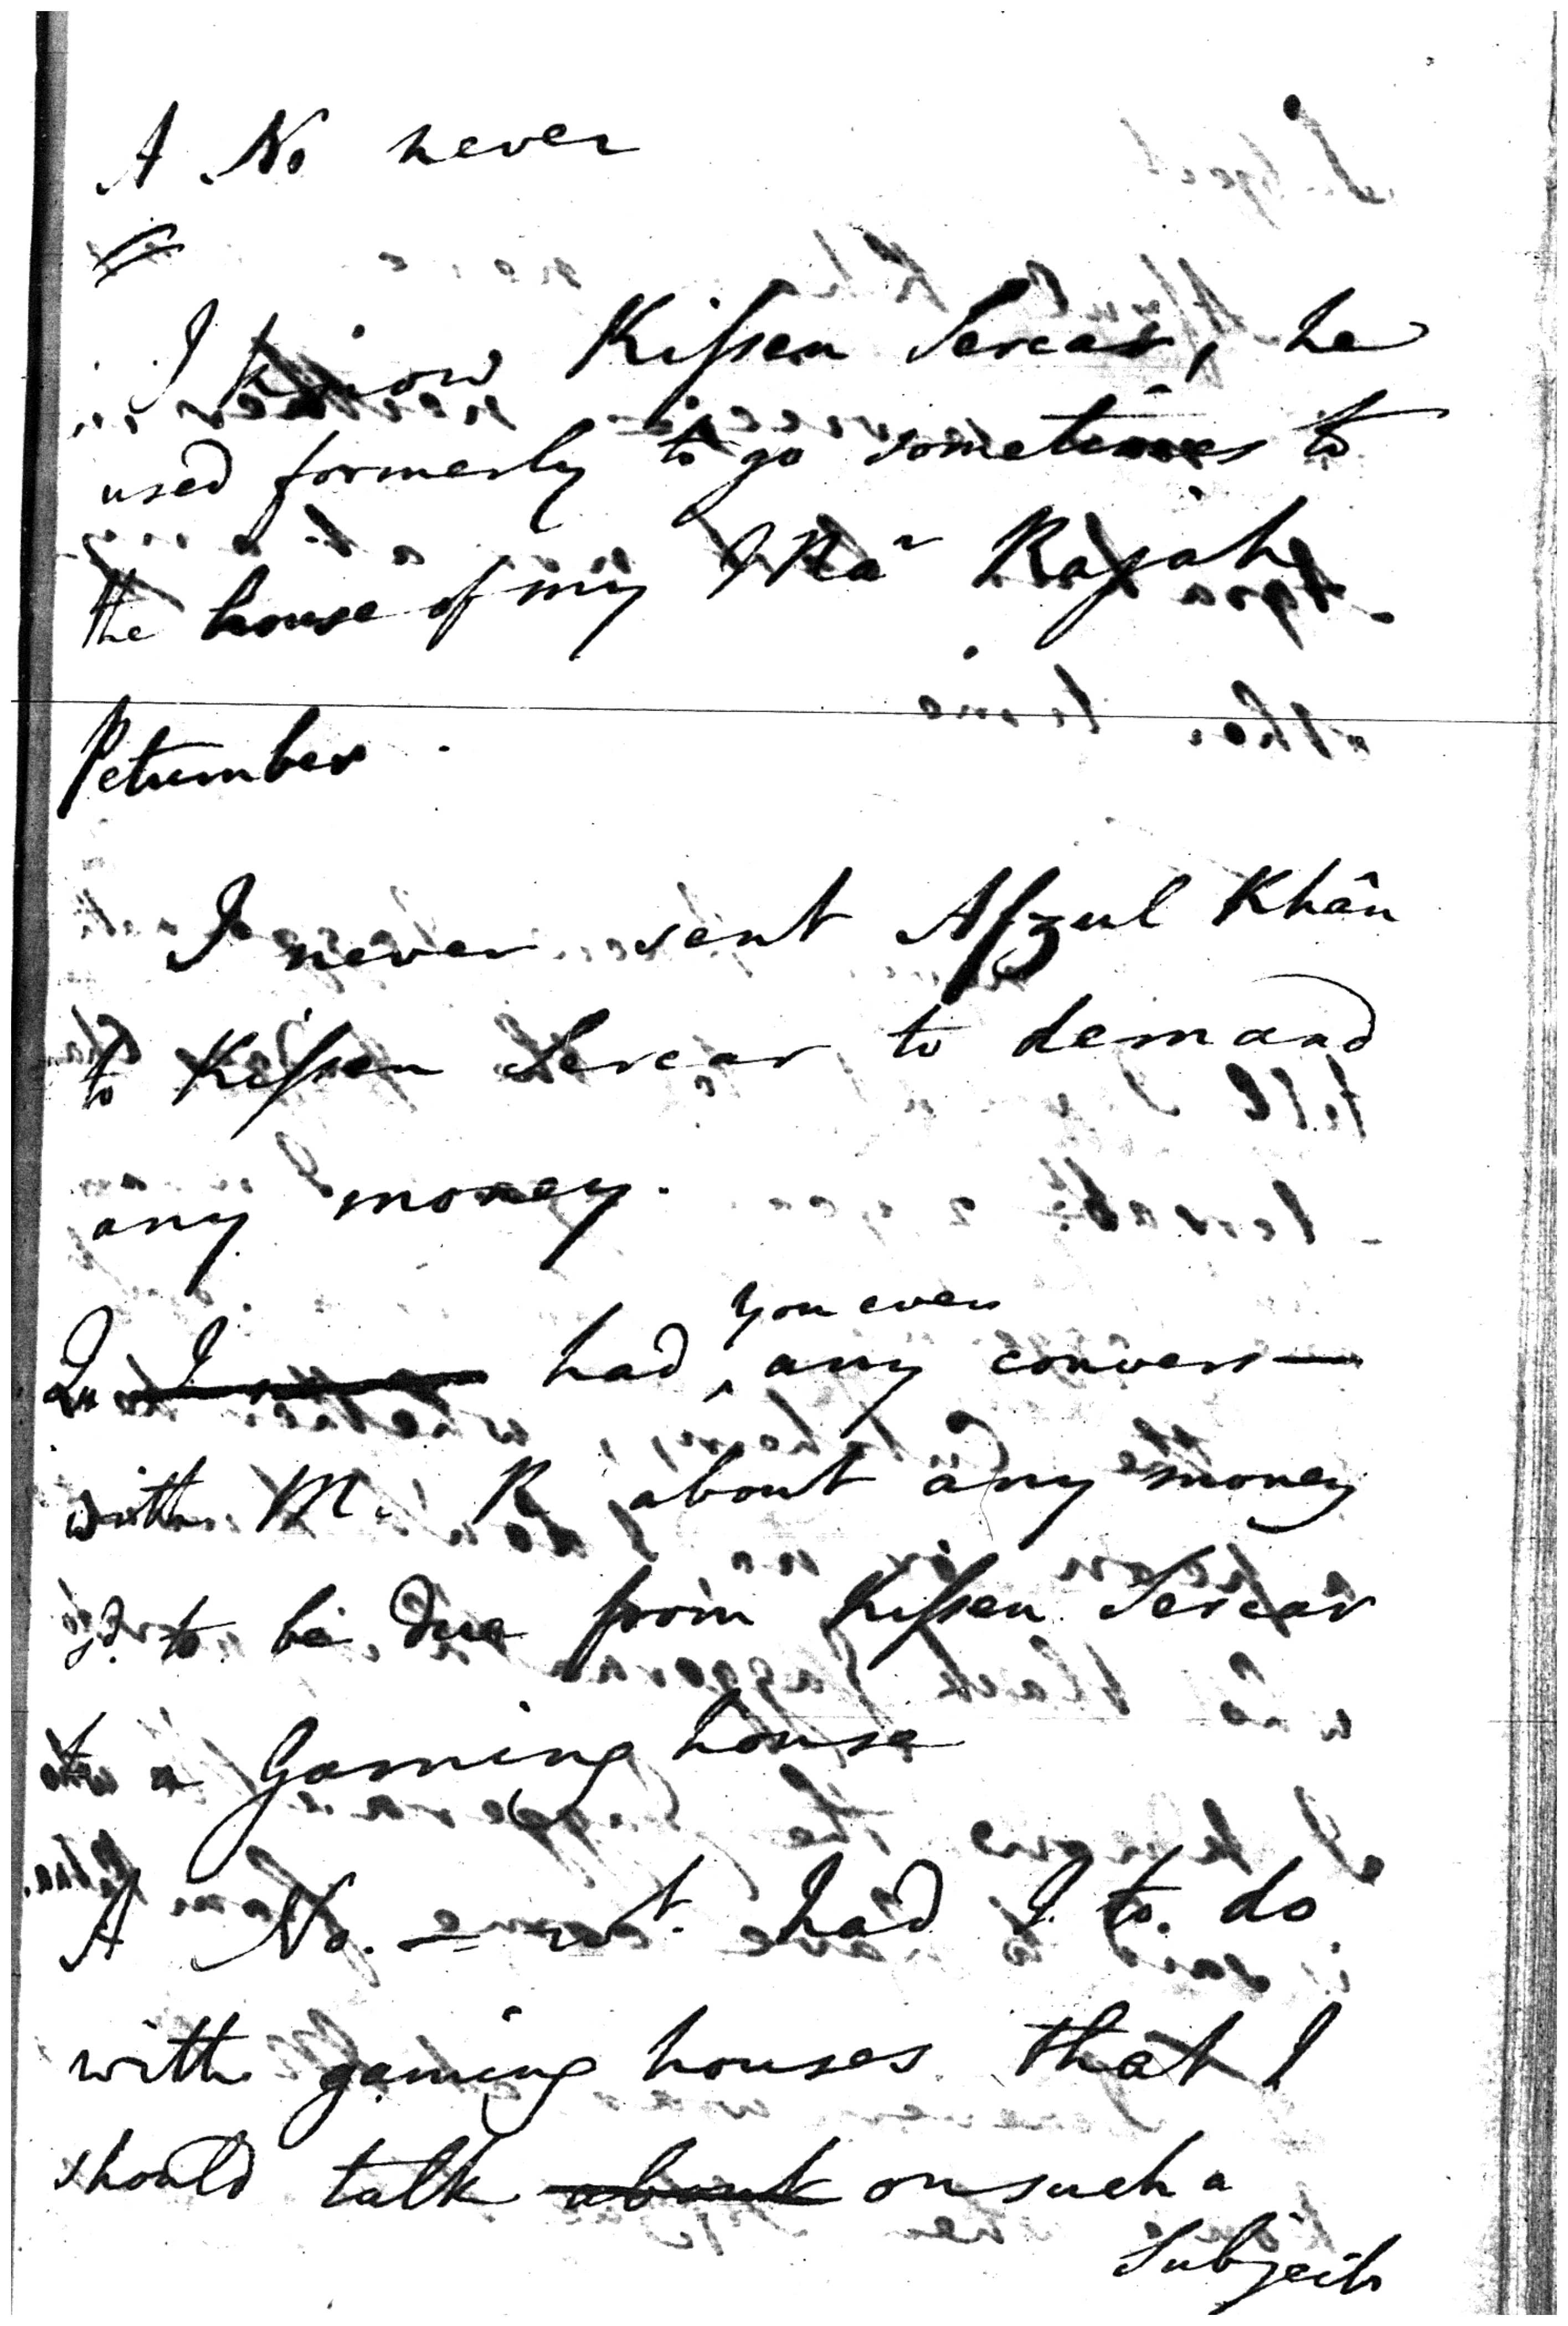 A No never
I know Kissen Sercar, he
used formerly to go sometimes to
the house of my Mã Rajah
Petumber
I never sent Afzul Khân
to Kissen Sercar to demand
any money.
you ever
Qu I never had, any convers—
with M. R about any money
sd. to be due from Kissen Sercar
to a Gaming house
A No. – wt. had I to. do
with gaming houses that I
should talk about on such a
Subject